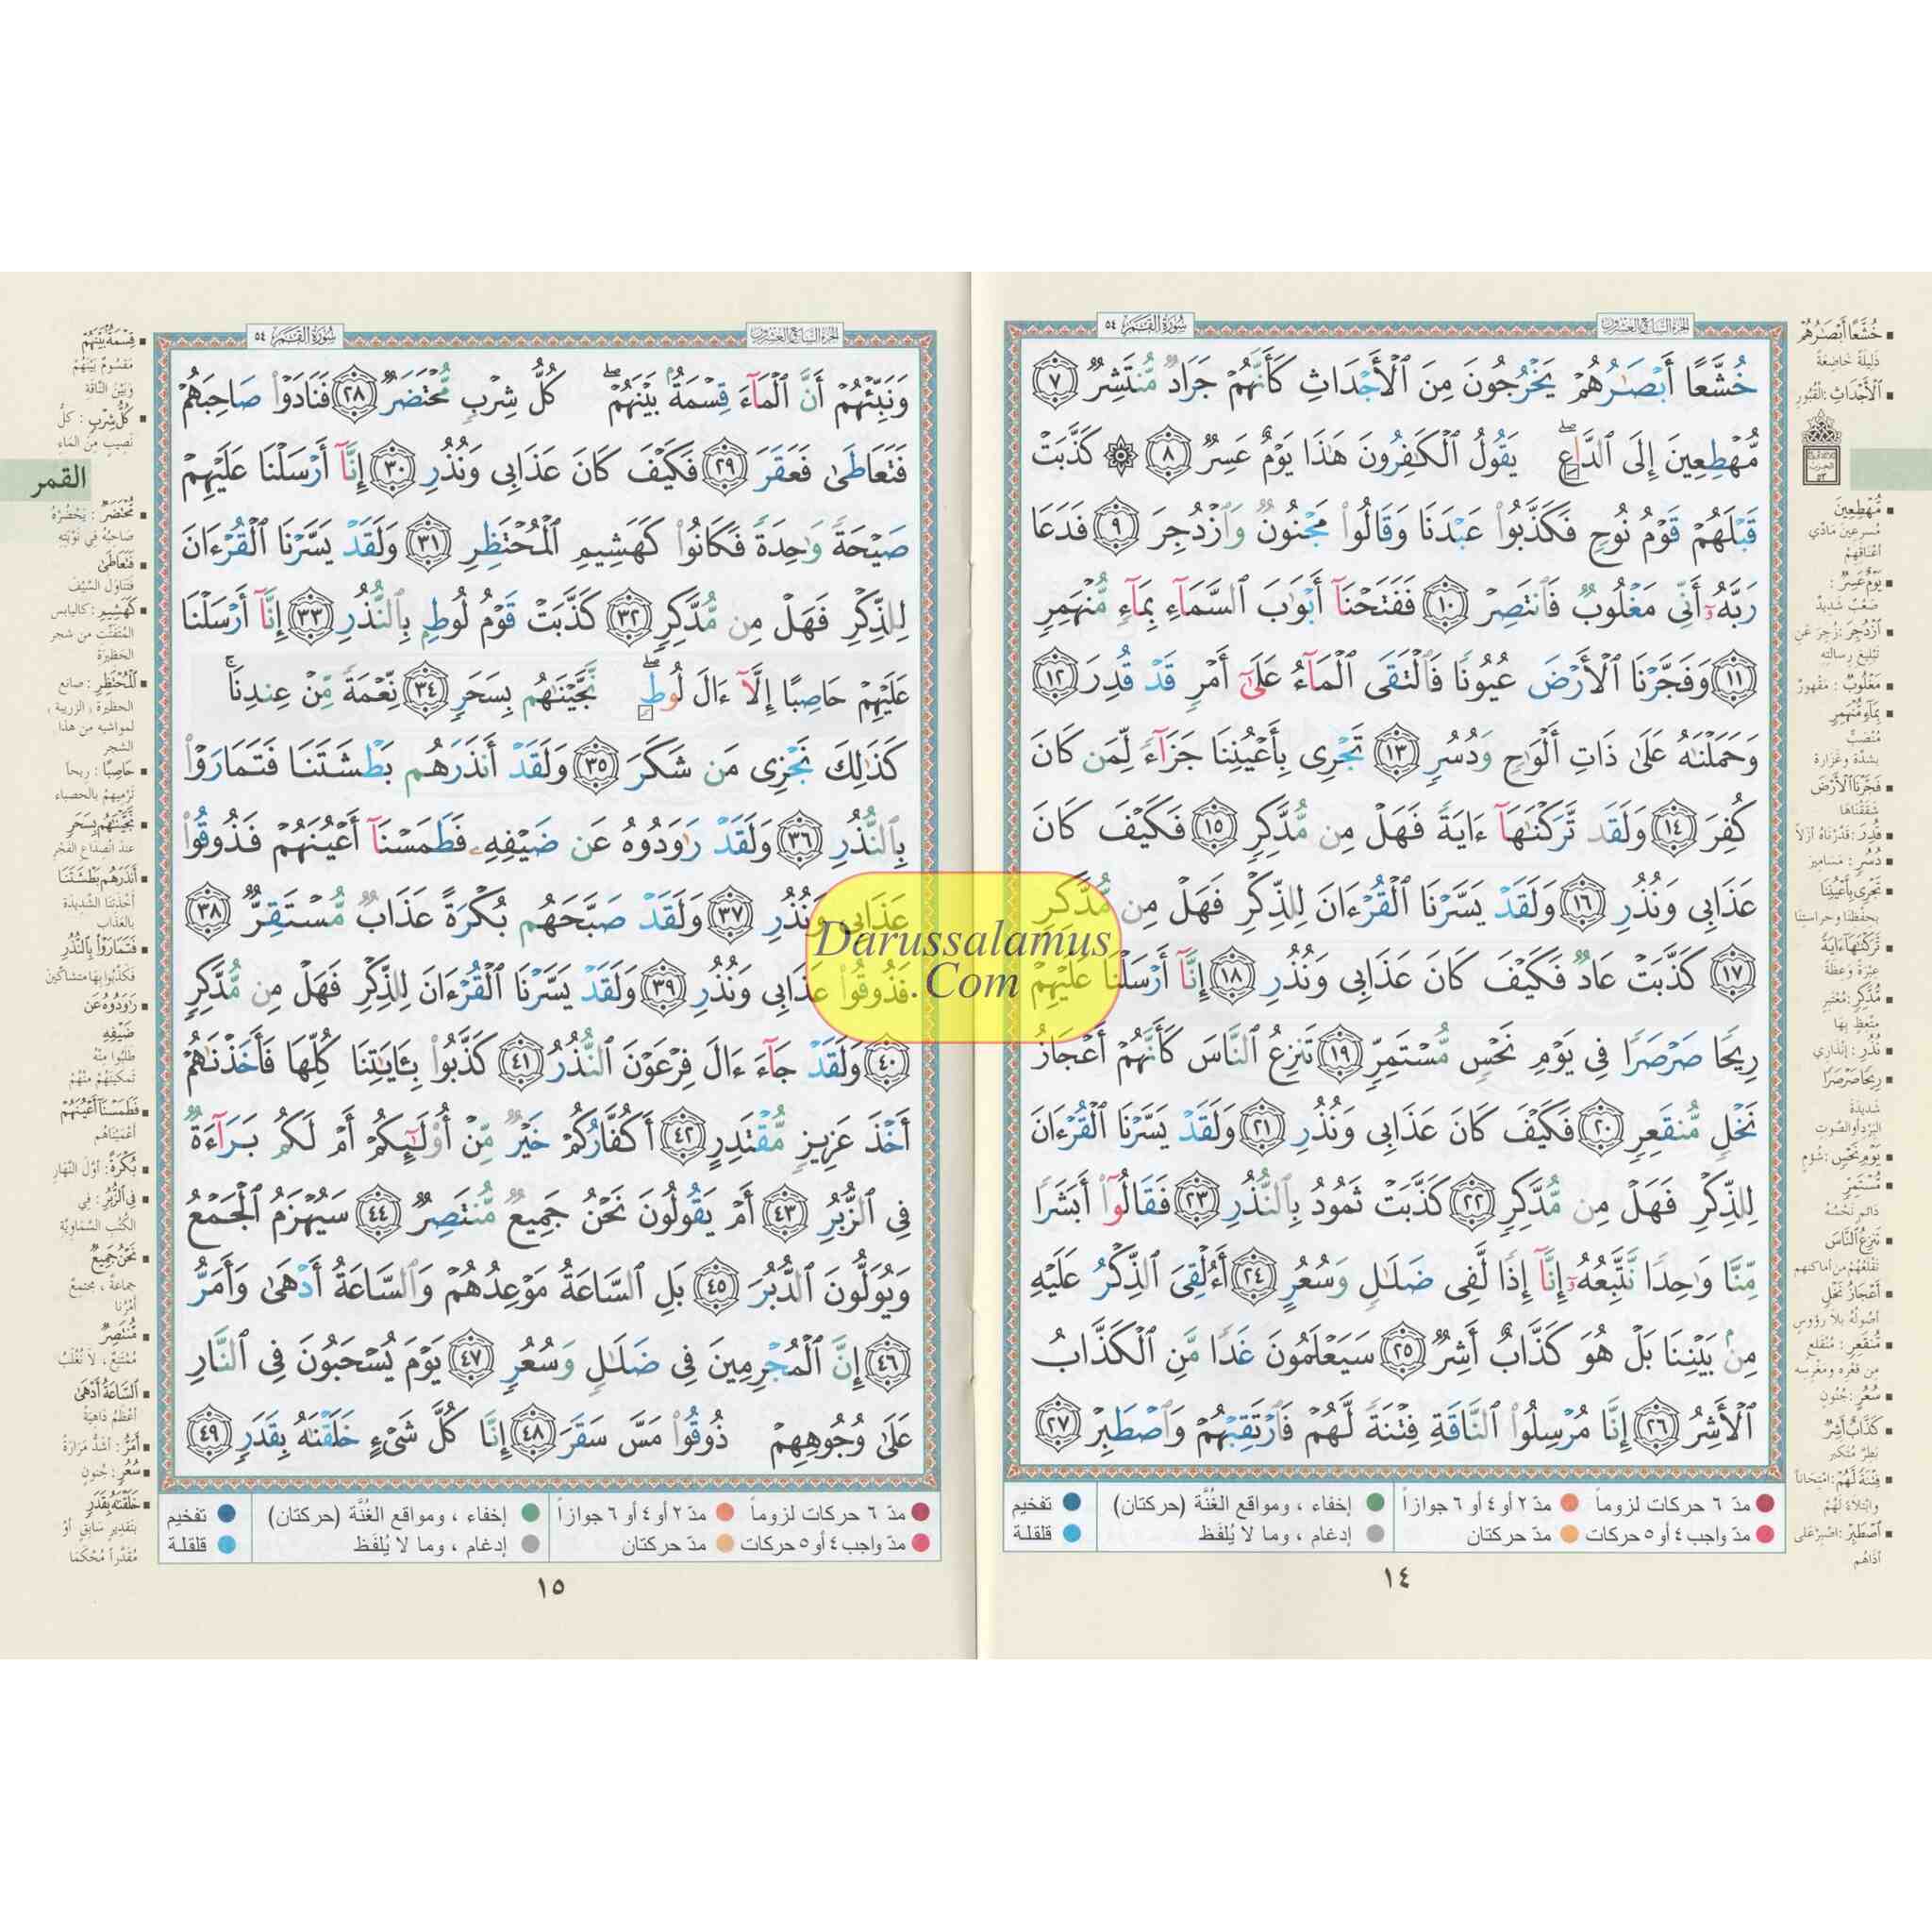 الجزء السابع والعشرون
سورة القمر ٥٤
خُشَّعًا أَبْصَٰرُهُمْ يَخْرُجُونَ مِنَ ٱلْأَجْدَاثِ كَأَنَّهُمْ جَرَادٌ مُّنتَشِرٌ ٧
مُّهْطِعِينَ إِلَى ٱلدَّاعِ ۖ يَقُولُ ٱلْكَٰفِرُونَ هَٰذَا يَوْمٌ عَسِرٌ ٨ ۞ كَذَّبَتْ
قَبْلَهُمْ قَوْمُ نُوحٍ فَكَذَّبُوا۟ عَبْدَنَا وَقَالُوا۟ مَجْنُونٌ وَٱزْدُجِرَ ٩ فَدَعَا
رَبَّهُۥٓ أَنِّى مَغْلُوبٌ فَٱنتَصِرْ ١٠ فَفَتَحْنَآ أَبْوَٰبَ ٱلسَّمَآءِ بِمَآءٍ مُّنْهَمِرٍ
١١ وَفَجَّرْنَا ٱلْأَرْضَ عُيُونًا فَٱلْتَقَى ٱلْمَآءُ عَلَىٰٓ أَمْرٍ قَدْ قُدِرَ ١٢
وَحَمَلْنَٰهُ عَلَىٰ ذَاتِ أَلْوَٰحٍ وَدُسُرٍ ١٣ تَجْرِى بِأَعْيُنِنَا جَزَآءً لِّمَن كَانَ
كُفِرَ ١٤ وَلَقَد تَّرَكْنَٰهَآ ءَايَةً فَهَلْ مِن مُّدَّكِرٍ ١٥ فَكَيْفَ كَانَ
عَذَابِى وَنُذُرِ ١٦ وَلَقَدْ يَسَّرْنَا ٱلْقُرْءَانَ لِلذِّكْرِ فَهَلْ مِن مُّدَّكِرٍ
١٧ كَذَّبَتْ عَادٌ فَكَيْفَ كَانَ عَذَابِى وَنُذُرِ ١٨ إِنَّآ أَرْسَلْنَا عَلَيْهِمْ
رِيحًا صَرْصَرًا فِى يَوْمِ نَحْسٍ مُّسْتَمِرٍّ ١٩ تَنزِعُ ٱلنَّاسَ كَأَنَّهُمْ أَعْجَازُ
نَخْلٍ مُّنقَعِرٍ ٢٠ فَكَيْفَ كَانَ عَذَابِى وَنُذُرِ ٢١ وَلَقَدْ يَسَّرْنَا ٱلْقُرْءَانَ
لِلذِّكْرِ فَهَلْ مِن مُّدَّكِرٍ ٢٢ كَذَّبَتْ ثَمُودُ بِٱلنُّذُرِ ٢٣ فَقَالُوٓا۟ أَبَشَرًا
مِّنَّا وَٰحِدًا نَّتَّبِعُهُۥٓ إِنَّآ إِذًا لَّفِى ضَلَٰلٍ وَسُعُرٍ ٢٤ أَءُلْقِىَ ٱلذِّكْرُ عَلَيْهِ
مِنۢ بَيْنِنَا بَلْ هُوَ كَذَّابٌ أَشِرٌ ٢٥ سَيَعْلَمُونَ غَدًا مَّنِ ٱلْكَذَّابُ
ٱلْأَشِرُ ٢٦ إِنَّا مُرْسِلُوا۟ ٱلنَّاقَةِ فِتْنَةً لَّهُمْ فَٱرْتَقِبْهُمْ وَٱصْطَبِرْ ٢٧
خُشَّعًا أَبْصَٰرُهُمْ
ذليلة خاضعة
ٱلْأَجْدَاثِ: القبور
مُّهْطِعِينَ
مسرعين مادّي
أعناقهم
يَوْمٌ عَسِرٌ:
صعب شديد
ٱزْدُجِرَ: زُجر عن
تبليغ رسالته
مَغْلُوبٌ: مقهور
بِمَآءٍ مُّنْهَمِرٍ
منصبّ
بشدة وغزارة
فَجَّرْنَا ٱلْأَرْضَ
شققناها
قُدِرَ: قدّرناه أزلاً
دُسُرٍ: مسامير
تَجْرِى بِأَعْيُنِنَا
بحفظنا وحراستنا
تَّرَكْنَٰهَآ ءَايَةً
عبرة وعظة
مُّدَّكِرٍ: معتبر
متّعظ بها
نُذُرِ: إنذاري
رِيحًا صَرْصَرًا
شديدة
البرد أو الصوت
يَوْمِ نَحْسٍ: شؤم
مُّسْتَمِرٍّ
دائم نحسه
تَنزِعُ ٱلنَّاسَ
تقلعهم من أماكنهم
أَعْجَازُ نَخْلٍ
أصوله بلا رؤوس
مُّنقَعِرٍ: منقلع
من قعره ومغرسه
سُعُرٍ: جنون
كَذَّابٌ أَشِرٌ
بطر متكبر
فِتْنَةً لَّهُمْ: امتحاناً
وابتلاءً لهم
ٱصْطَبِرْ: اصبر على
أذاهم
مدّ ٦ حركات لزوماً مدّ ٢ أو ٤ أو ٦ جوازاً إخفاء ، ومواقع الغُنَّة (حركتان) تفخيم
مدّ واجب ٤ أو ٥ حركات مدّ حركتان إدغام ، وما لا يُلفَظ قلقلة
١٤
الجزء السابع والعشرون
سورة القمر ٥٤
وَنَبِّئْهُمْ أَنَّ ٱلْمَآءَ قِسْمَةٌۢ بَيْنَهُمْ ۖ كُلُّ شِرْبٍ مُّحْتَضَرٌ ٢٨ فَنَادَوْا۟ صَاحِبَهُمْ
فَتَعَاطَىٰ فَعَقَرَ ٢٩ فَكَيْفَ كَانَ عَذَابِى وَنُذُرِ ٣٠ إِنَّآ أَرْسَلْنَا عَلَيْهِمْ
صَيْحَةً وَٰحِدَةً فَكَانُوا۟ كَهَشِيمِ ٱلْمُحْتَظِرِ ٣١ وَلَقَدْ يَسَّرْنَا ٱلْقُرْءَانَ
لِلذِّكْرِ فَهَلْ مِن مُّدَّكِرٍ ٣٢ كَذَّبَتْ قَوْمُ لُوطٍۭ بِٱلنُّذُرِ ٣٣ إِنَّآ أَرْسَلْنَا
عَلَيْهِمْ حَاصِبًا إِلَّآ ءَالَ لُوطٍ ۖ نَّجَّيْنَٰهُم بِسَحَرٍ ٣٤ نِّعْمَةً مِّنْ عِندِنَا ۚ
كَذَٰلِكَ نَجْزِى مَن شَكَرَ ٣٥ وَلَقَدْ أَنذَرَهُم بَطْشَتَنَا فَتَمَارَوْا۟
بِٱلنُّذُرِ ٣٦ وَلَقَدْ رَٰوَدُوهُ عَن ضَيْفِهِۦ فَطَمَسْنَآ أَعْيُنَهُمْ فَذُوقُوا۟
عَذَابِى وَنُذُرِ ٣٧ وَلَقَدْ صَبَّحَهُم بُكْرَةً عَذَابٌ مُّسْتَقِرٌّ ٣٨
فَذُوقُوا۟ عَذَابِى وَنُذُرِ ٣٩ وَلَقَدْ يَسَّرْنَا ٱلْقُرْءَانَ لِلذِّكْرِ فَهَلْ مِن مُّدَّكِرٍ
٤٠ وَلَقَدْ جَآءَ ءَالَ فِرْعَوْنَ ٱلنُّذُرُ ٤١ كَذَّبُوا۟ بِـَٔايَٰتِنَا كُلِّهَا فَأَخَذْنَٰهُمْ
أَخْذَ عَزِيزٍ مُّقْتَدِرٍ ٤٢ أَكُفَّارُكُمْ خَيْرٌ مِّنْ أُو۟لَٰٓئِكُمْ أَمْ لَكُم بَرَآءَةٌ
فِى ٱلزُّبُرِ ٤٣ أَمْ يَقُولُونَ نَحْنُ جَمِيعٌ مُّنتَصِرٌ ٤٤ سَيُهْزَمُ ٱلْجَمْعُ
وَيُوَلُّونَ ٱلدُّبُرَ ٤٥ بَلِ ٱلسَّاعَةُ مَوْعِدُهُمْ وَٱلسَّاعَةُ أَدْهَىٰ وَأَمَرُّ
٤٦ إِنَّ ٱلْمُجْرِمِينَ فِى ضَلَٰلٍ وَسُعُرٍ ٤٧ يَوْمَ يُسْحَبُونَ فِى ٱلنَّارِ
عَلَىٰ وُجُوهِهِمْ ذُوقُوا۟ مَسَّ سَقَرَ ٤٨ إِنَّا كُلَّ شَىْءٍ خَلَقْنَٰهُ بِقَدَرٍ ٤٩
قِسْمَةٌۢ بَيْنَهُمْ
مقسوم بينهم
وبين الناقة
كُلُّ شِرْبٍ: كل
نصيب من الماء
القمر
مُّحْتَضَرٌ: يحضره
صاحبه في نوبته
فَتَعَاطَىٰ
فتناول السيف
كَهَشِيمِ: كاليابس
المتفتّت من شجر
الحظيرة
ٱلْمُحْتَظِرِ: صانع
الحظيرة (الزريبة)
لمواشيه من هذا
الشجر
حَاصِبًا: ريحاً
ترميهم بالحصباء
نَّجَّيْنَٰهُم بِسَحَرٍ
عند انصداع الفجر
أَنذَرَهُم بَطْشَتَنَا
أخذتنا الشديدة
بالعذاب
فَتَمَارَوْا۟ بِٱلنُّذُرِ
فكذّبوا بها متشاكّين
رَٰوَدُوهُ عَن
ضَيْفِهِ
طلبوا منه
تمكينهم منهم
فَطَمَسْنَآ أَعْيُنَهُمْ
أعميناهم
بُكْرَةً: أول النهار
فِى ٱلزُّبُرِ: في
الكتب السماوية
نَحْنُ جَمِيعٌ
جماعة ، مجتمع
أمرنا
مُّنتَصِرٌ
ممتنع، لا نُغلب
ٱلسَّاعَةُ أَدْهَىٰ
أعظم داهية
أَمَرُّ: أشد مرارة
سُعُرٍ: جنون
خَلَقْنَٰهُ بِقَدَرٍ
بتقدير سابق أو
مقدّراً محكماً
مدّ ٦ حركات لزوماً مدّ ٢ أو ٤ أو ٦ جوازاً إخفاء ، ومواقع الغُنَّة (حركتان) تفخيم
مدّ واجب ٤ أو ٥ حركات مدّ حركتان إدغام ، وما لا يُلفَظ قلقلة
١٥
Darussalamus
.Com